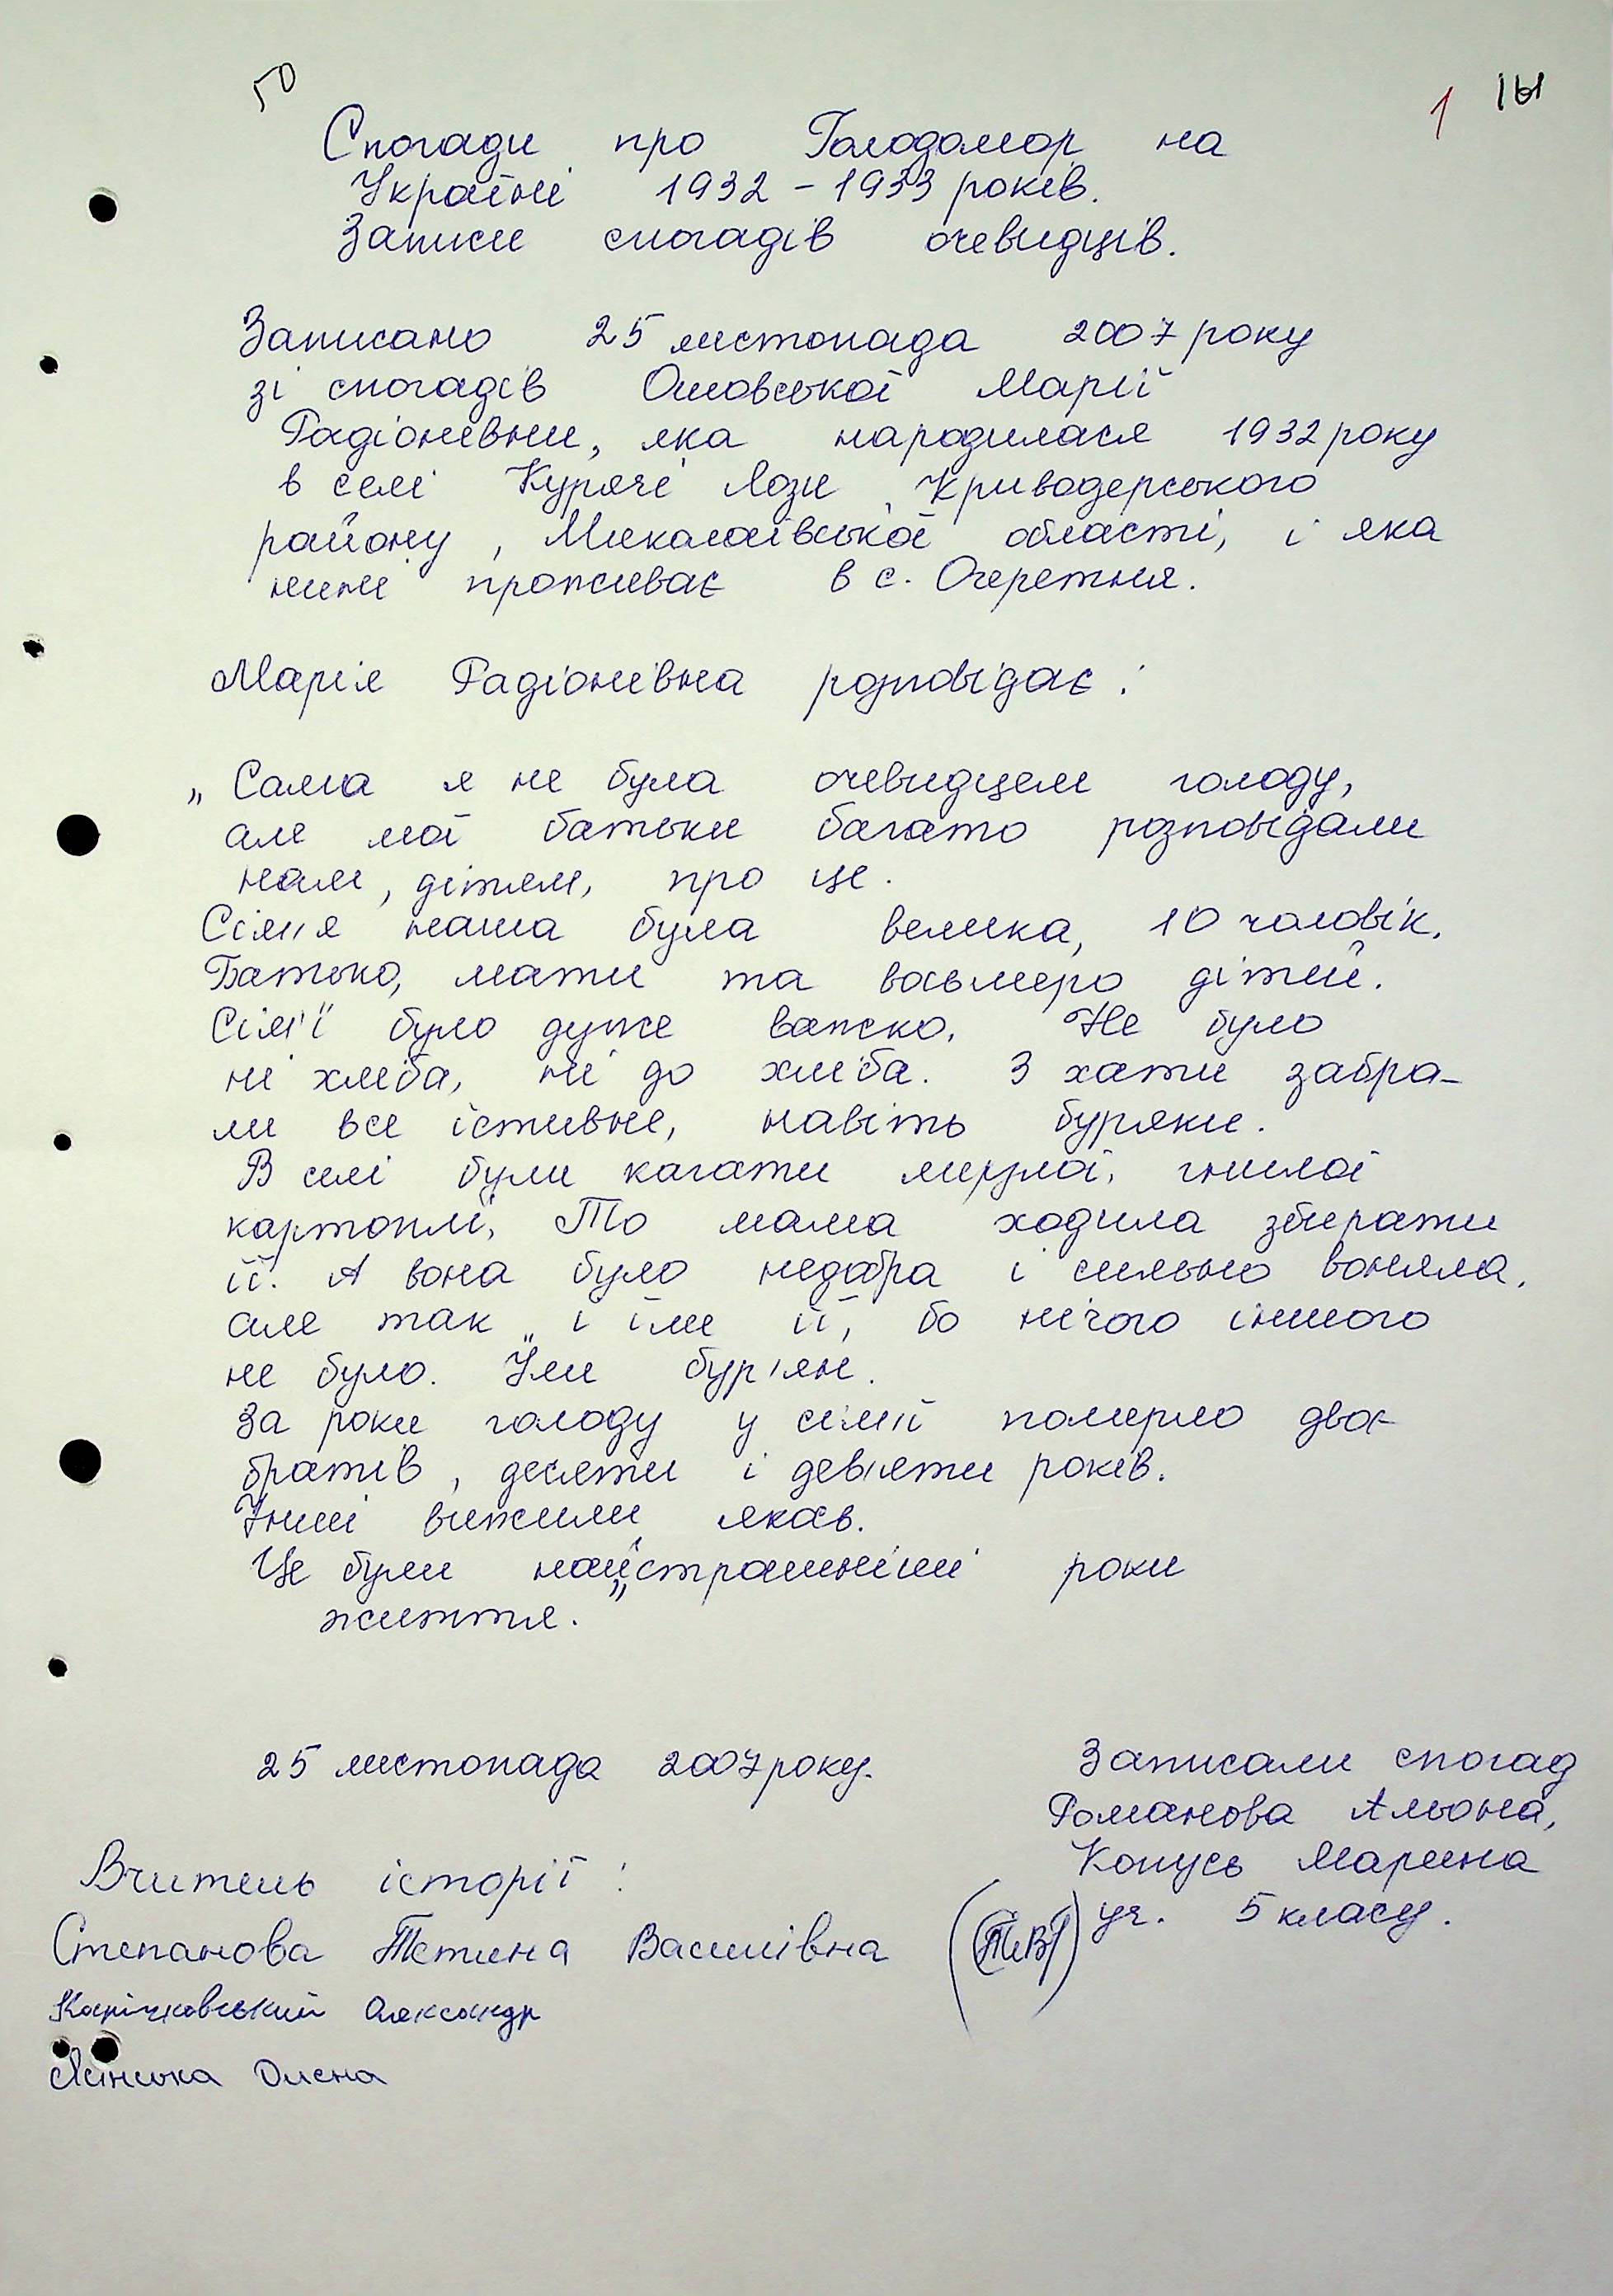 50
1
Спогади про Голодомор на
Україні 1932 - 1933 років.
Записи спогадів очевидців.
Записано 25 листопада 2007 року
зі спогадів Ошовської Марії
Радіонівни, яка народилася 1932 року
в селі Курячі Лози, Криводерського
району, Миколаївської області, і яка
нині проживає в с. Очеретня.
Марія Радіонівна розповідає:
„Сама я не була очевидцем голоду,
але мої батьки багато розповідали
нам, дітям, про це.
Сім'я наша була велика, 10 чоловік.
Батько, мати та восьмеро дітей.
Сім'ї було дуже важко. Не було
ні хліба, ні до хліба. З хати забра-
ли все їстивне, навіть буряки.
В селі були кагати мерзлої, гнилої
картоплі. То мама ходила збирати
її. А вона було недобра і сильно воняла,
але так і їли її, бо нічого іншого
не було. Їли бур'ян.
За роки голоду у сім'ї померло двоє
братів, десяти і дев'яти років.
Інші вижили якось.
Це були найстрашніші роки
життя.”
25 листопада 2007 року.
Записали спогад
Романова Альона,
Конусь Марина
уч. 5 класу.
Вчитель історії:
Степанова Тетяна Василівна
Олександр
Олена